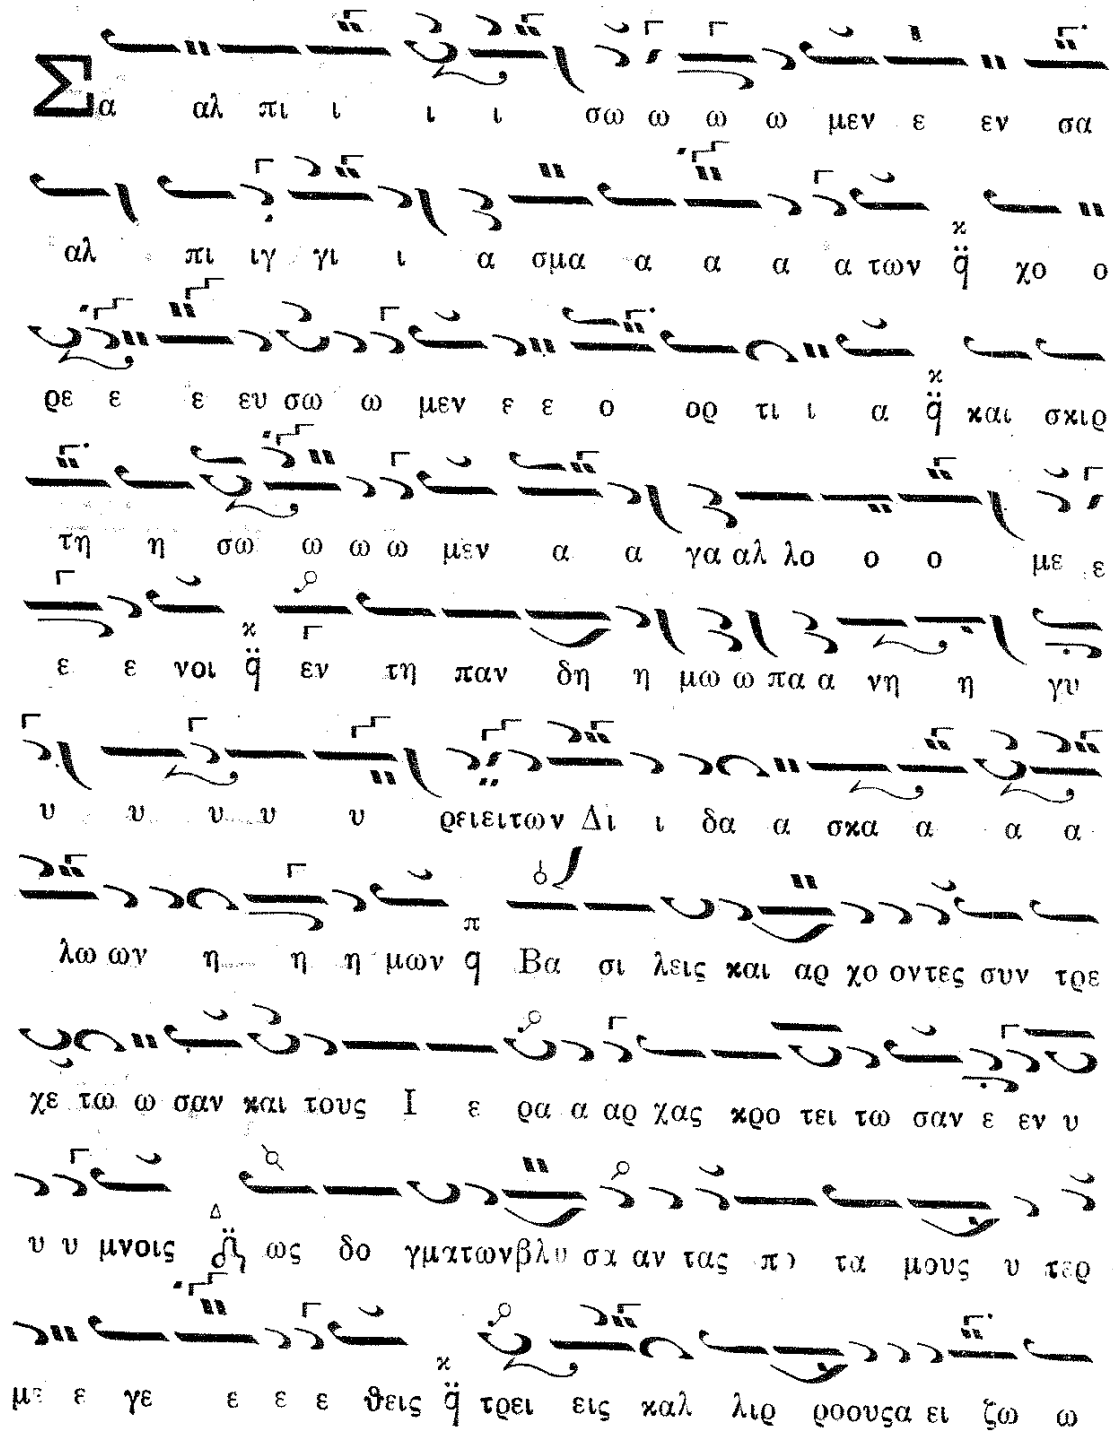 Σα αλ πι ι ι ι σω ω ω ω μεν ε εν σα
αλ πι ιγ γι ι α σμα α α α α των κ q̈ χο ο
ρε ε ε ευ σω ω μεν ε ε ο ορ τι ι α κ q̈ και σκιρ
τη η σω ω ω ω μεν α α γα αλ λο ο ο με ε
ε ε νοι κ q̈ εν τη παν δη η μω ω πα α νη η γυ
υ υ υ υ υ ρειειτων Δι ι δα α σκα α α α
λω ων η η η μων π q Βα σι λεις και αρ χο οντες συν τρε
χε τω ω σαν και τους Ι ε ρα α αρ χας κρο τει τω σαν ε εν υ
υ υ μνοις Δ ως δο γματωνβλυ σα αν τας τα μους υ
γε ε ε ε θεις κ q̈ τρει εις καλ λιρ ροουςα ει ζω ω